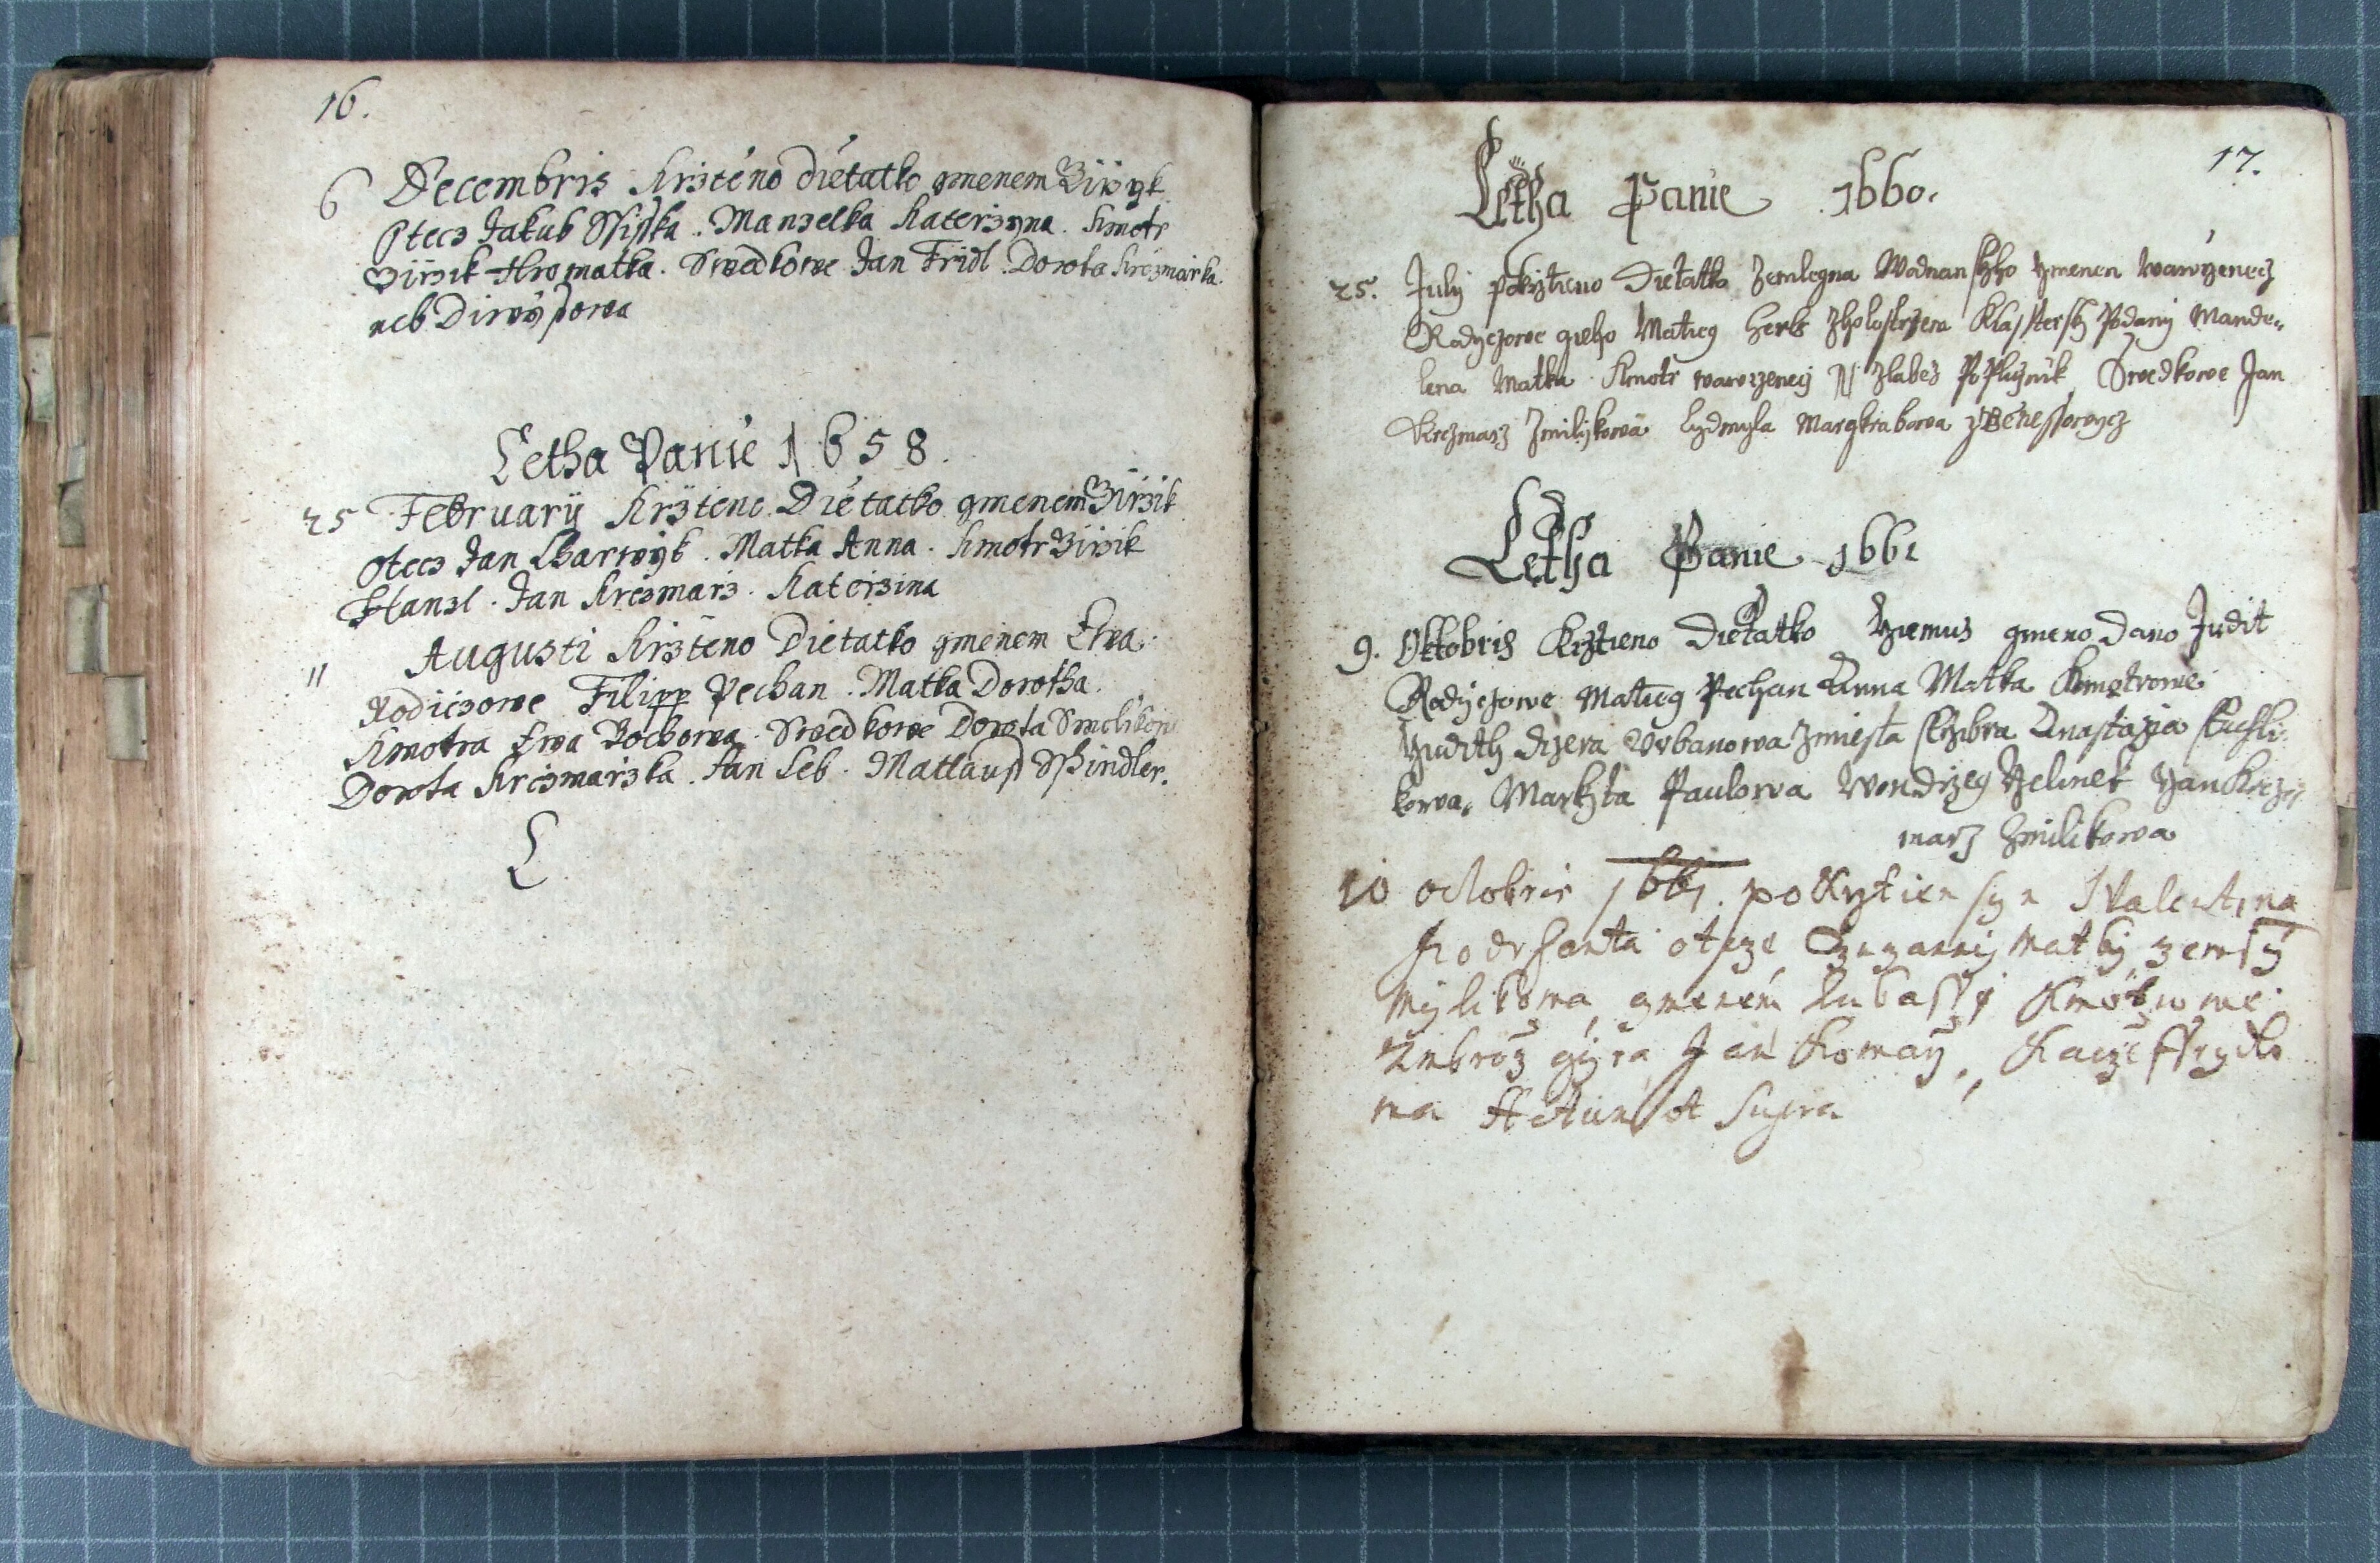 16.
6 Decembris Krzteno Dietatko gmenem Girzyk
Otecz Jakub Ssisska. Manzelka Katerzyna. Kmotr
Girzik Hromatka. Swedkowe Jan Fridl. Dorota Krczmarka
neb Diwissowa
Letha Panie 1658.
25 February Krzteno Dietatko gmenem Girzik
Otecz Jan Barwyk. Matka Anna. Kmotr Girzik
Hanzl. Jan Krczmarz. Katerzina
11 Augusti Krzteno Dietatko gmenem Ewa.
Rodiczowe Filipp Pechan. Matka Dorotha.
Kmotra Ewa. Swedkowe Dorota
Dorota Krczmarzka. Jan Leb. Mattauss Sspindler.
L
17.
Letha Panie 1660.
25. July pokrztieno Dietatko Wodnanskyho gmenem Wawrzenecz
Rodyczowe geho Matieg Herk Klassterssky Podany Mande„
lena Matka Kmotr Wawrzenecz N Swedkowe Jan
Krczmarz Zmilikowa Lydmyla Margkrabowa z Benessowycz
Letha Panie 1661
9. Oktobris Krztieno Dietatko kziemuz gmeno Dano Judit
Rodyczowe Matieg Pechan Anna Matka Kmotrowie
Judith Dczera Urbanowa zmiesta Anastazia
kowa, Markyta Paulowa Wondrzeg Gelinek Yan Krcz„
marz Zmilikowa
10 octobris 1661. pokrztien syn Walentina
otcze Zuzanny matky ze wsy
Mylikowa gmenem Lukassz Kmotrowe
Ambroz Jan
wa supra